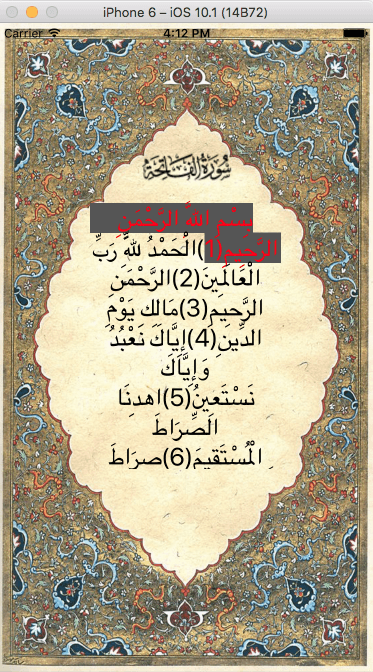 iPhone 6 – iOS 10.1 (14B72)
Carrier 4:12 PM
سُورَةُ الْفَاتِحَةِ
بِسْمِ اللَّهِ الرَّحْمَنِ
الرَّحِيمِ(1)الْحَمْدُ لِلَّهِ رَبِّ
الْعَالَمِينَ(2)الرَّحْمَنِ
الرَّحِيمِ(3)مَالِكِ يَوْمِ
الدِّينِ(4)إِيَّاكَ نَعْبُدُ
وَإِيَّاكَ
نَسْتَعِينُ(5)اهدِنَا
الصِّرَاطَ
الْمُسْتَقِيمَ(6)صِرَاطَ